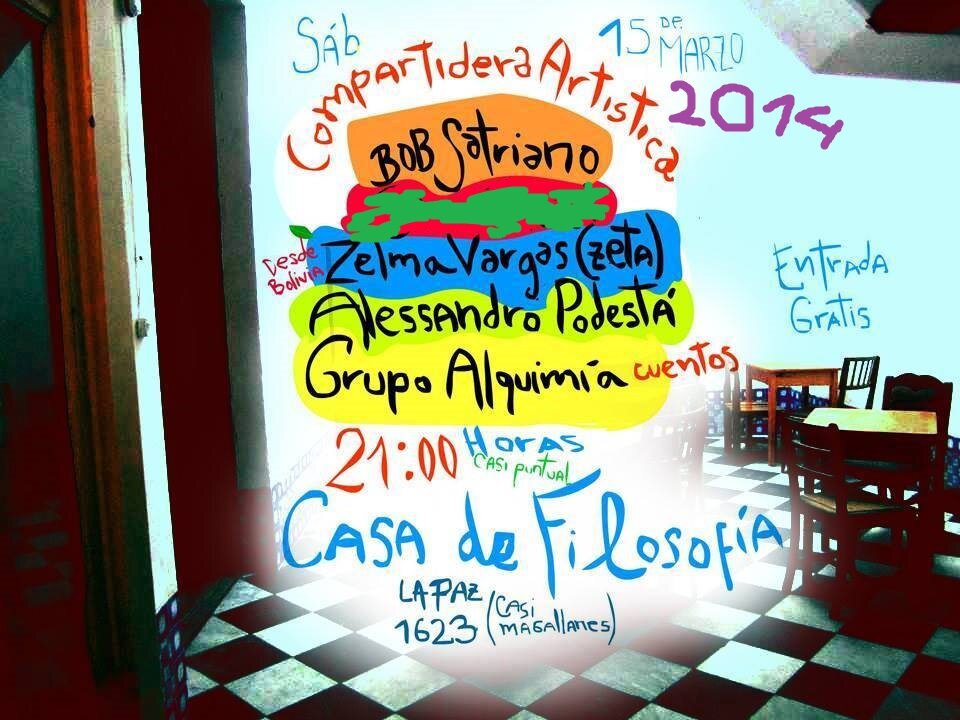 Sáb
15 DE MARZO
2014
Compartidera Artistica
BOB Satriano
Desde Bolivia
Zelma Vargas (zeta)
Alessandro Podestá
Grupo Alquimia cuentos
Entrada
Gratis
21:00 Horas
casi puntual
Casa de Filosofía
LA PAZ
1623 (CASI MAGALLANES)